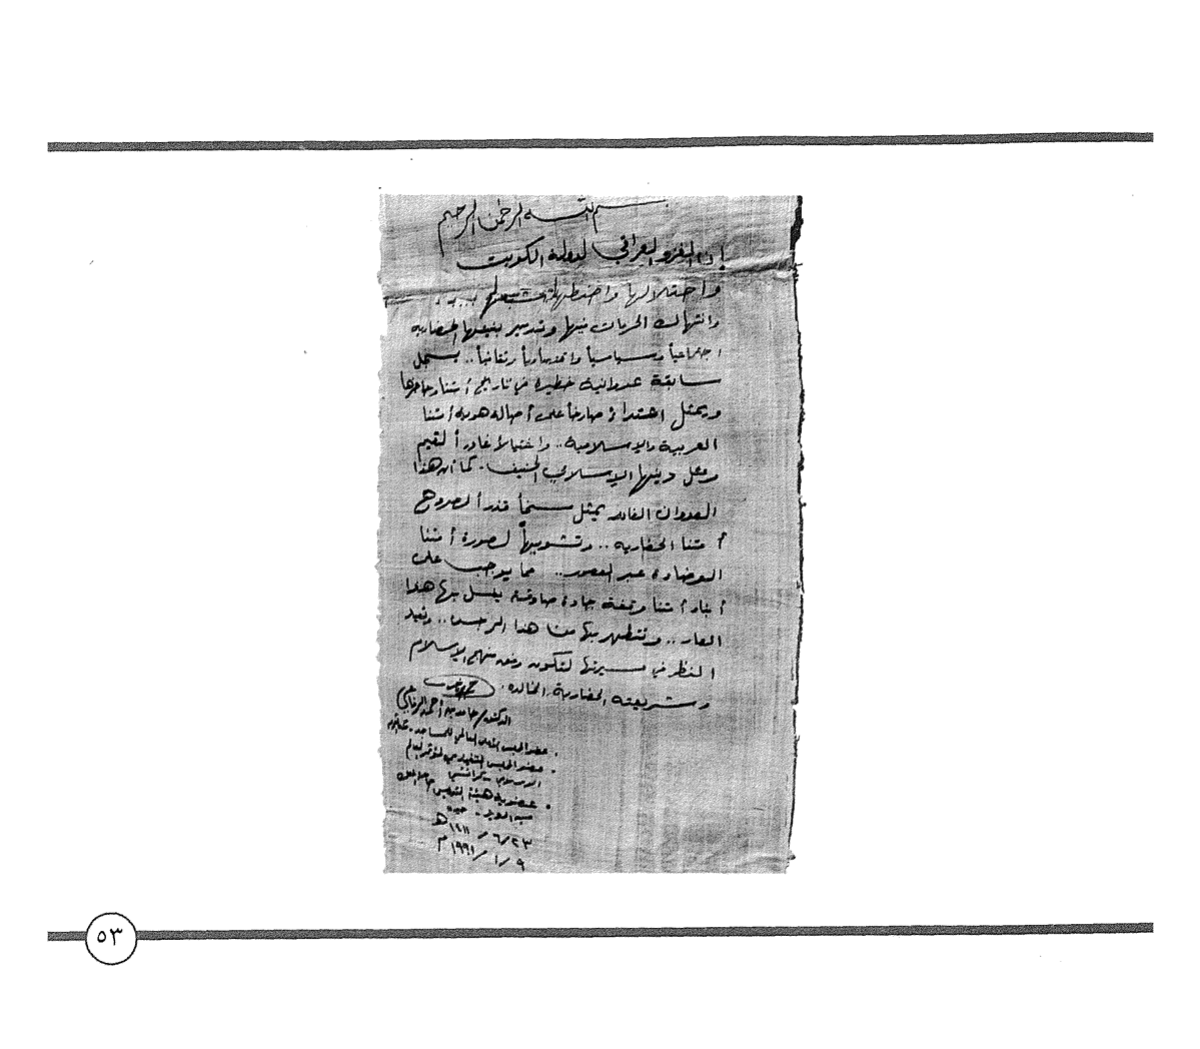 بسم الله الرحمن الرحيم
إن الغزو العراقي لدولة الكويت
واحتلالها واضطهاد شعبها ...
وانتهاك الحرمات فيها وتدمير بنيتها الحضارية
اجتماعياً وسياسياً واقتصادياً وثقافياً .. يسجل
سابقة عدوانية خطيرة في تاريخ أمتنا وحاضرها
ويمثل اعتداءً صارخاً على أصالة هوية أمتنا
العربية والإسلامية .. واغتيالاً غادراً لقيم
ومثل دينها الإسلامي الحنيف . كما أن هذا
العدوان الغادر يمثل مسخاً قذراً لصروح
أمتنا الحضارية .. وتشويهاً لصورة أمتنا
الوضاءة عبر العصور .. مما يوجب على
أبناء أمتنا وقفة جادة صادقة يغسل بها هذا
العار .. وتتطهر بها من هذا الرجس .. وتعيد
النظر في مسيرتها لتكون وفق منهج الإسلام
وشريعته الحضارية الخالدة .
الدكتور/ حامد بن أحمد الرفاعي
. عضو المجلس الأعلى العالمي للمساجد -
. عضو المجلس التنفيذي لمؤتمر العالم
الإسلامي - كراتشي
. عضو هيئة التدريس جامعة الملك
عبد العزيز - جدة
٢٣ / ٦ / ١٤١١ هـ
٩ / ١ / ١٩٩١ م
٥٣